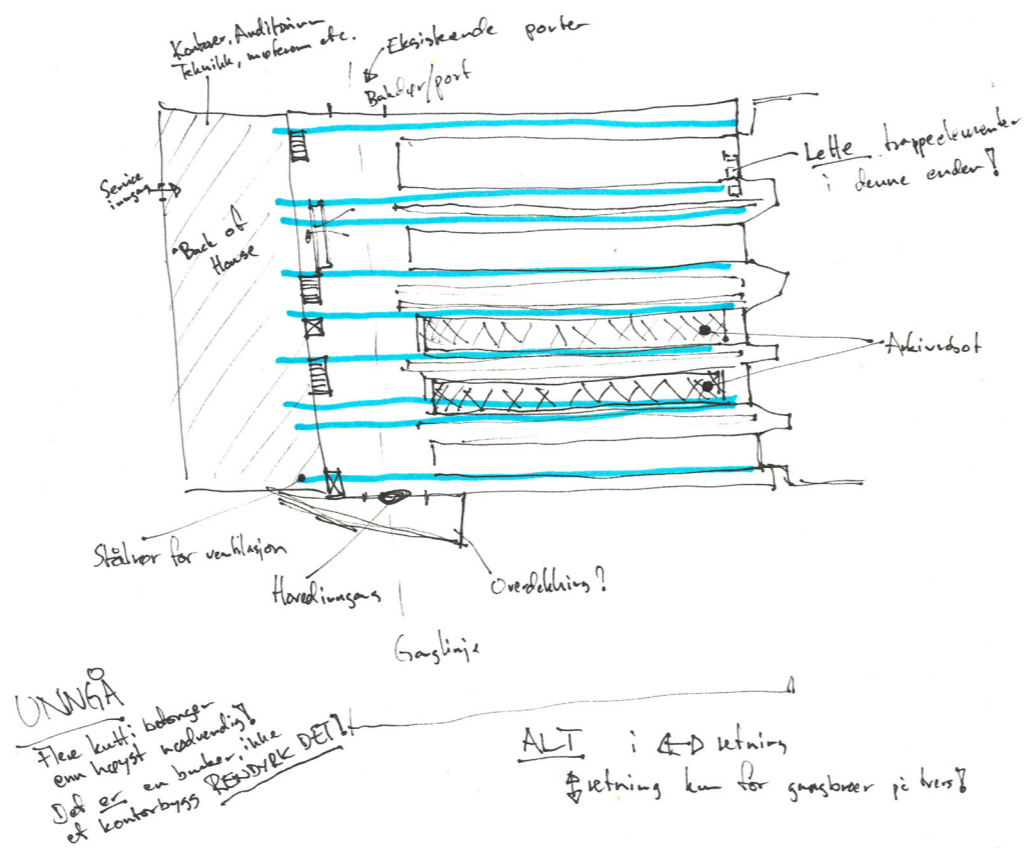 Kontorer, Auditorium
Teknikk, møterom etc.
Eksisterende porter
Bakdør/port
Lette trappeelementer
i denne enden!
Service
inngang
Back of
House
Arkivrobot
Stålrør for ventilasjon
Hovedinngang
Overdekking?
Ganglinje
UNNGÅ
Flere kutt i betongen
enn høyst nødvendig!
Det er en bunker ikke
et kontorbygg RENDYRK DET!
ALT i retning
retning kun for gangbroer på tvers!